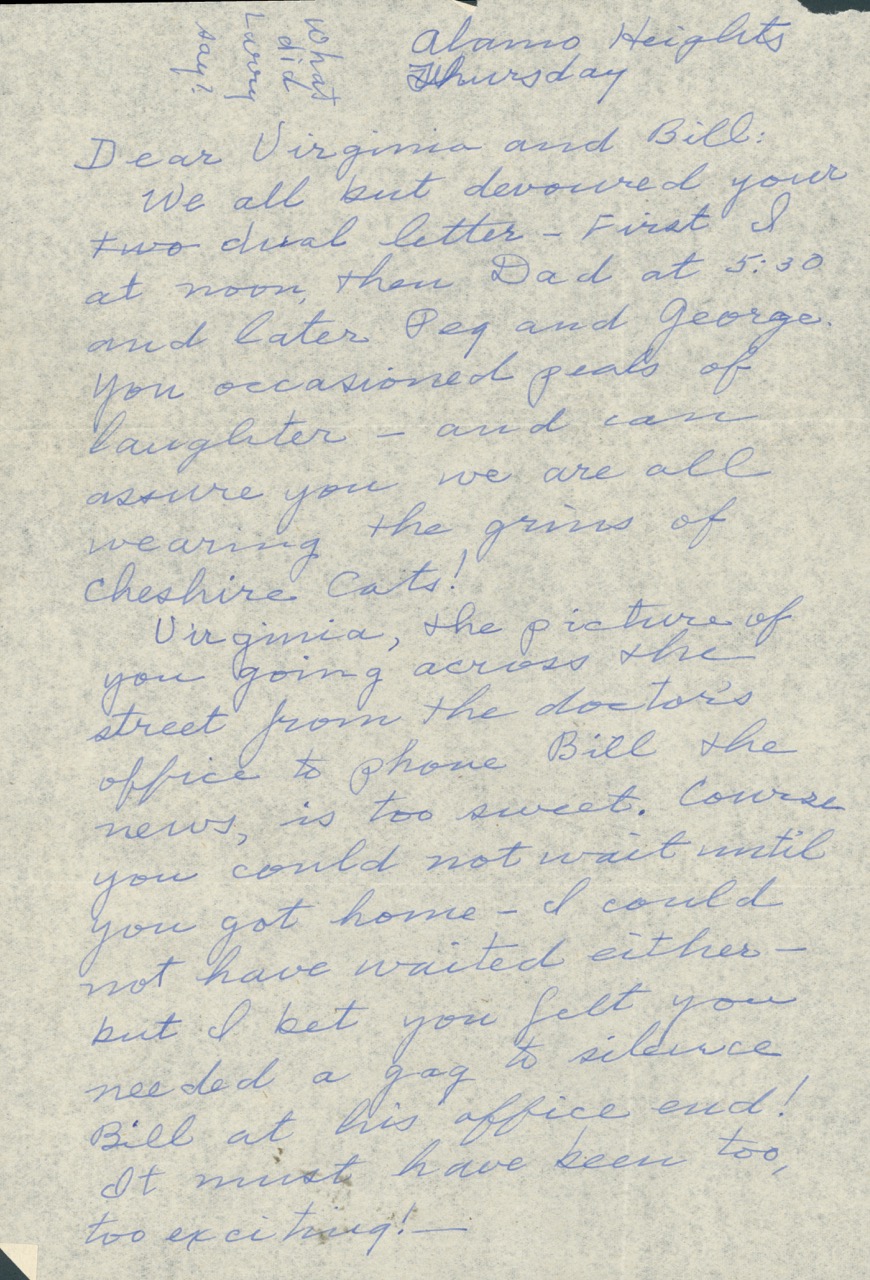 What
did
Larry
say?
Alamo Heights
Thursday
Dear Virginia and Bill:
We all but devoured your
two dual letter - First I
at noon, then Dad at 5:30
and later Peg and George.
You occasioned peals of
laughter - and can
assure you we are all
wearing the grins of
Cheshire Cats!
Virginia, the picture of
you going across the
street from the doctor's
office to phone Bill the
news, is too sweet. Course
you could not wait until
you got home - I could
not have waited either -
but I bet you felt you
needed a gag to silence
Bill at his office end!
It must have been too,
too exciting! —